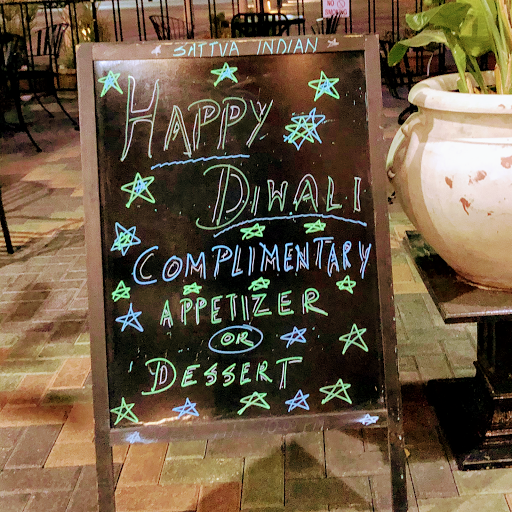 SATTVA INDIAN
HAPPY
DIWALI
COMPLIMENTARY
APPETIZER
OR
DESSERT